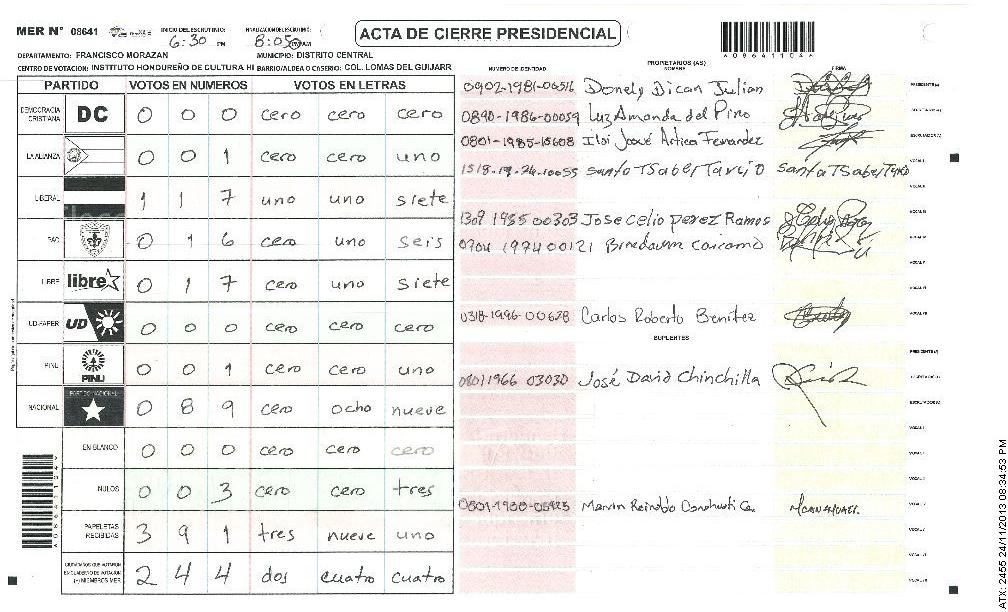 MER N° 08641
INICIO DEL ESCRUTINIO: 6:30 PM
FINALIZACION DEL ESCRUTINIO: 8:05
ACTA DE CIERRE PRESIDENCIAL
DEPARTAMENTO: FRANCISCO MORAZAN MUNICIPIO: DISTRITO CENTRAL
CENTRO DE VOTACION: INSTITUTO HONDUREÑO DE CULTURA HI BARRIO/ALDEA O CASERIO: COL. LOMAS DEL GUIJARR
PARTIDO VOTOS EN NUMEROS VOTOS EN LETRAS
DEMOCRACIA CRISTIANA DC 0 0 0 cero cero cero
LA ALIANZA 0 0 1 cero cero uno
LIBERAL 1 1 7 uno uno siete
PAC 0 1 6 cero uno seis
LIBRE libre 0 1 7 cero uno siete
UD-FAPER UD 0 0 0 cero cero cero
PINU PINU 0 0 1 cero cero uno
NACIONAL PARTIDO NACIONAL 0 8 9 cero ocho nueve
EN BLANCO 0 0 0 cero cero cero
NULOS 0 0 3 cero cero tres
PAPELETAS RECIBIDAS 3 9 1 tres nueve uno
CIUDADANOS QUE VOTARON EN CUADERNO DE VOTACION (+) MIEMBROS MER 2 4 4 dos cuatro cuatro
NUMERO DE IDENTIDAD PROPIETARIOS (AS) NOMBRE FIRMA
0902-1981-00516 Donely Dican Julian
0890-1986-00059 Luz Amanda del Pino
0801-1985-15608
santo TSabel Tarcio
1309 1985 00303 Jose celio perez Ramos
0704 1974 00121
0318-1996-00628 Carlos Roberto Benitez
SUPLENTES
0801 1966 03030 José David Chinchilla
Marvin Reinaldo
ATX: 2455 24/11/2013 08:34:53 PM